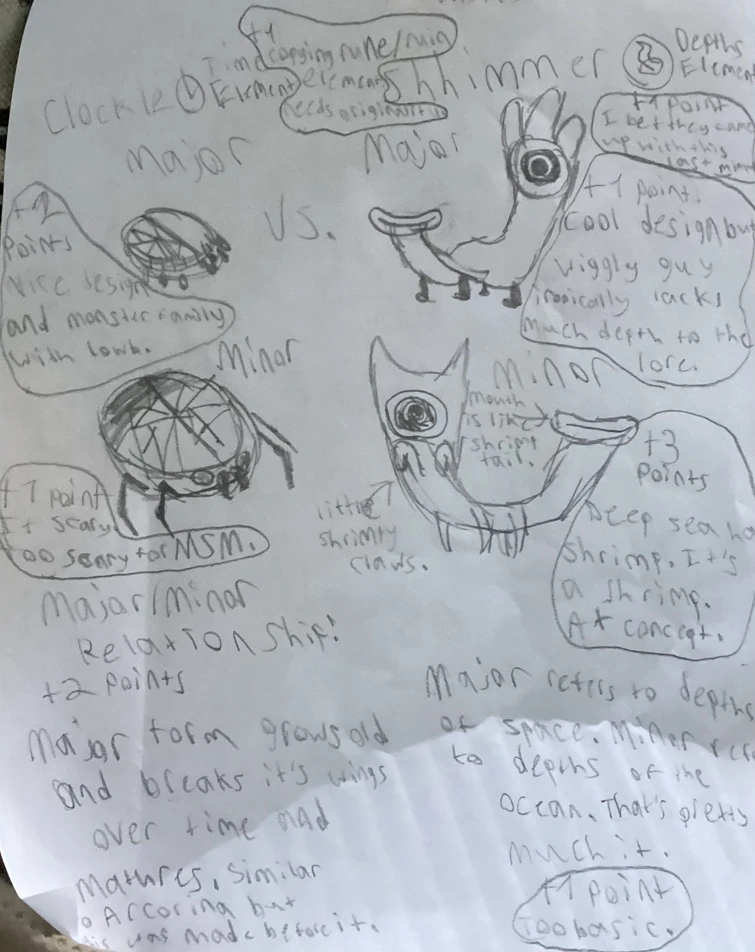 +1
copying rune/ruin
element
needs originality
Clockle
Time
Element
Shhimmer
Depths
Element
Major
Major
+1 point
I bet they came
up with this
last minute
+2
Points
Nice design
and monster family
with lowb.
VS.
+1 point.
Cool design but
wiggly guy
ironically lacks
much depth to the
lore.
Minor
Minor
mouth
is like
shrimp
tail.
little
shrimpy
claws.
+1 point
It scary
too scary for MSM.
+3
Points
Deep sea
shrimp. It's
a shrimp.
A+ concept.
Major/Minor
Relationship!
+2 points
Major form grows old
and breaks it's wings
over time and
matures. Similar
to Arcorina but
this was made before it.
Major refers to depths
of space. Minor
to depths of the
ocean. That's pretty
much it.
+1 point
Too basic.